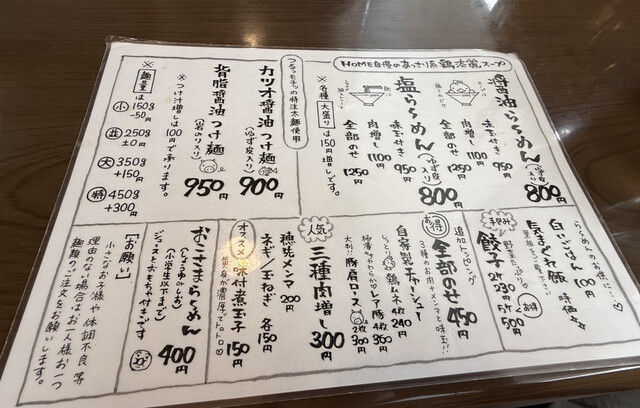 HOME自慢のあっさり系鶏清湯スープ
醤油らぁめん
(ゆず皮入り)
800円
味玉付き 950円
肉増し 1100円
全部のせ 1250円
塩らぁめん
(ゆず皮入り)
800円
味玉付き 950円
肉増し 1100円
全部のせ 1250円
※各種 大盛り は150円増しです。
つるっモチッの特注太麺使用
カツオ醤油つけ麺
(ゆず皮入り)
900円
背脂醤油つけ麺
950円
※つけ汁増しは100円で承ります。
※麺量は
小 150g -50円
並 250g ±0円
大 350g +150円
特 450g +300円
らぁめんのお供に…♡
白いごはん 100円
気まぐれ飯 時価
手包み
餃子
2ケ 230円
5ケ 500円
お得
追加トッピング
お得
全部のせ 450円
3種のお肉+メンマと味玉!!
自家製チャーシュー
しっとり鶏ムネ 4枚 240円
レア豚 4枚 360円
豚肩ロース 2枚 300円
人気
三種肉増し 300円
穂先メンマ 200円
ネギ/玉ねぎ 各150円
オススメ!
味付煮玉子 150円
黄身が濃厚でトロトロ♡
おこさまらぁめん 400円
(しょうゆorしお)
(小学生以下まで)
ジュースとおもちゃ付きです
【お願い】
小さなお子様や体調不良等
理由のない場合はお一人様お一つ
麺類のご注文をお願いします。